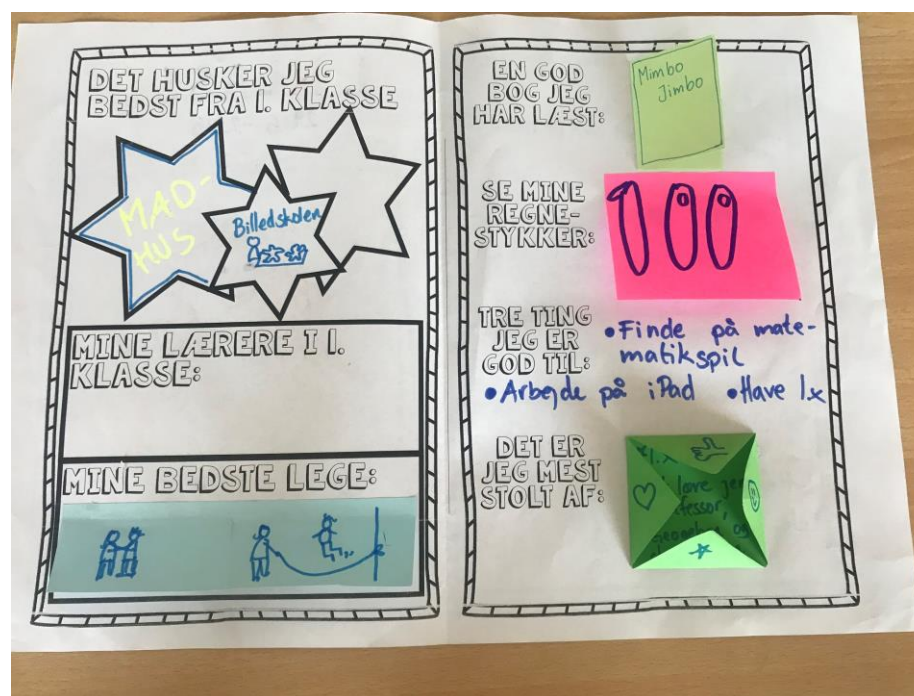 DET HUSKER JEG
BEDST FRA 1. KLASSE
MAD-
HUS
Billedskolen
MINE LÆRERE I 1.
KLASSE:
MINE BEDSTE LEGE:
EN GOD
BOG JEG
HAR LÆST:
Mimbo
Jimbo
SE MINE
REGNE-
STYKKER:
100
TRE TING
JEG ER
GOD TIL:
•Finde på mate-
matikspil
•Arbejde på iPad •Have 1.x
DET ER
JEG MEST
STOLT AF:
1.x